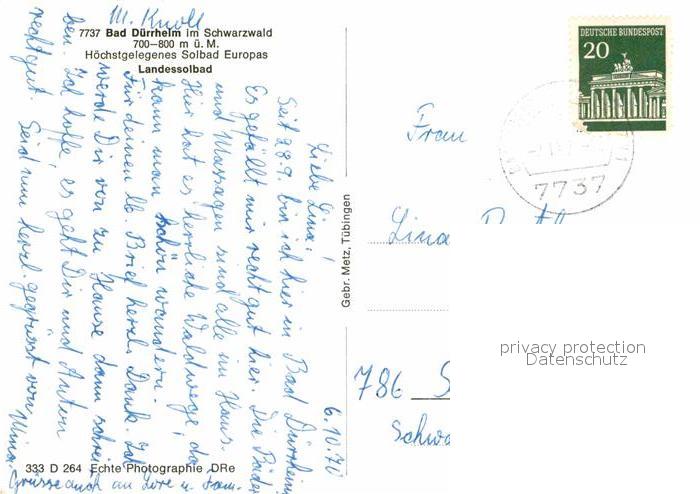 M. Knoll
7737 Bad Dürrheim im Schwarzwald
700–800 m ü. M.
Höchstgelegenes Solbad Europas
Landessolbad
6.10.70
Liebe Lina!
Seit 28.9. bin ich hier in Bad Dürrheim
Es gefällt mir recht gut hier. Die Bäder
und Massagen sind alle im Haus.
Hier hat es herrliche Waldwege, da
kann man schön wandern.
Für deinen lb. Brief herzl. Dank. Ich
werde Dir von zu Hause dann schrei
ben. Ich hoffe es geht Dir und Anton
recht gut. Seid nun herzl. gegrüsst von
Mina.
Grüsse auch an Lore u. Fam.
333 D 264 Echte Photographie DRe
Gebr. Metz, Tübingen
DEUTSCHE BUNDESPOST
20
7737
Frau
Lina
786 S
Schwa
privacy protection
Datenschutz